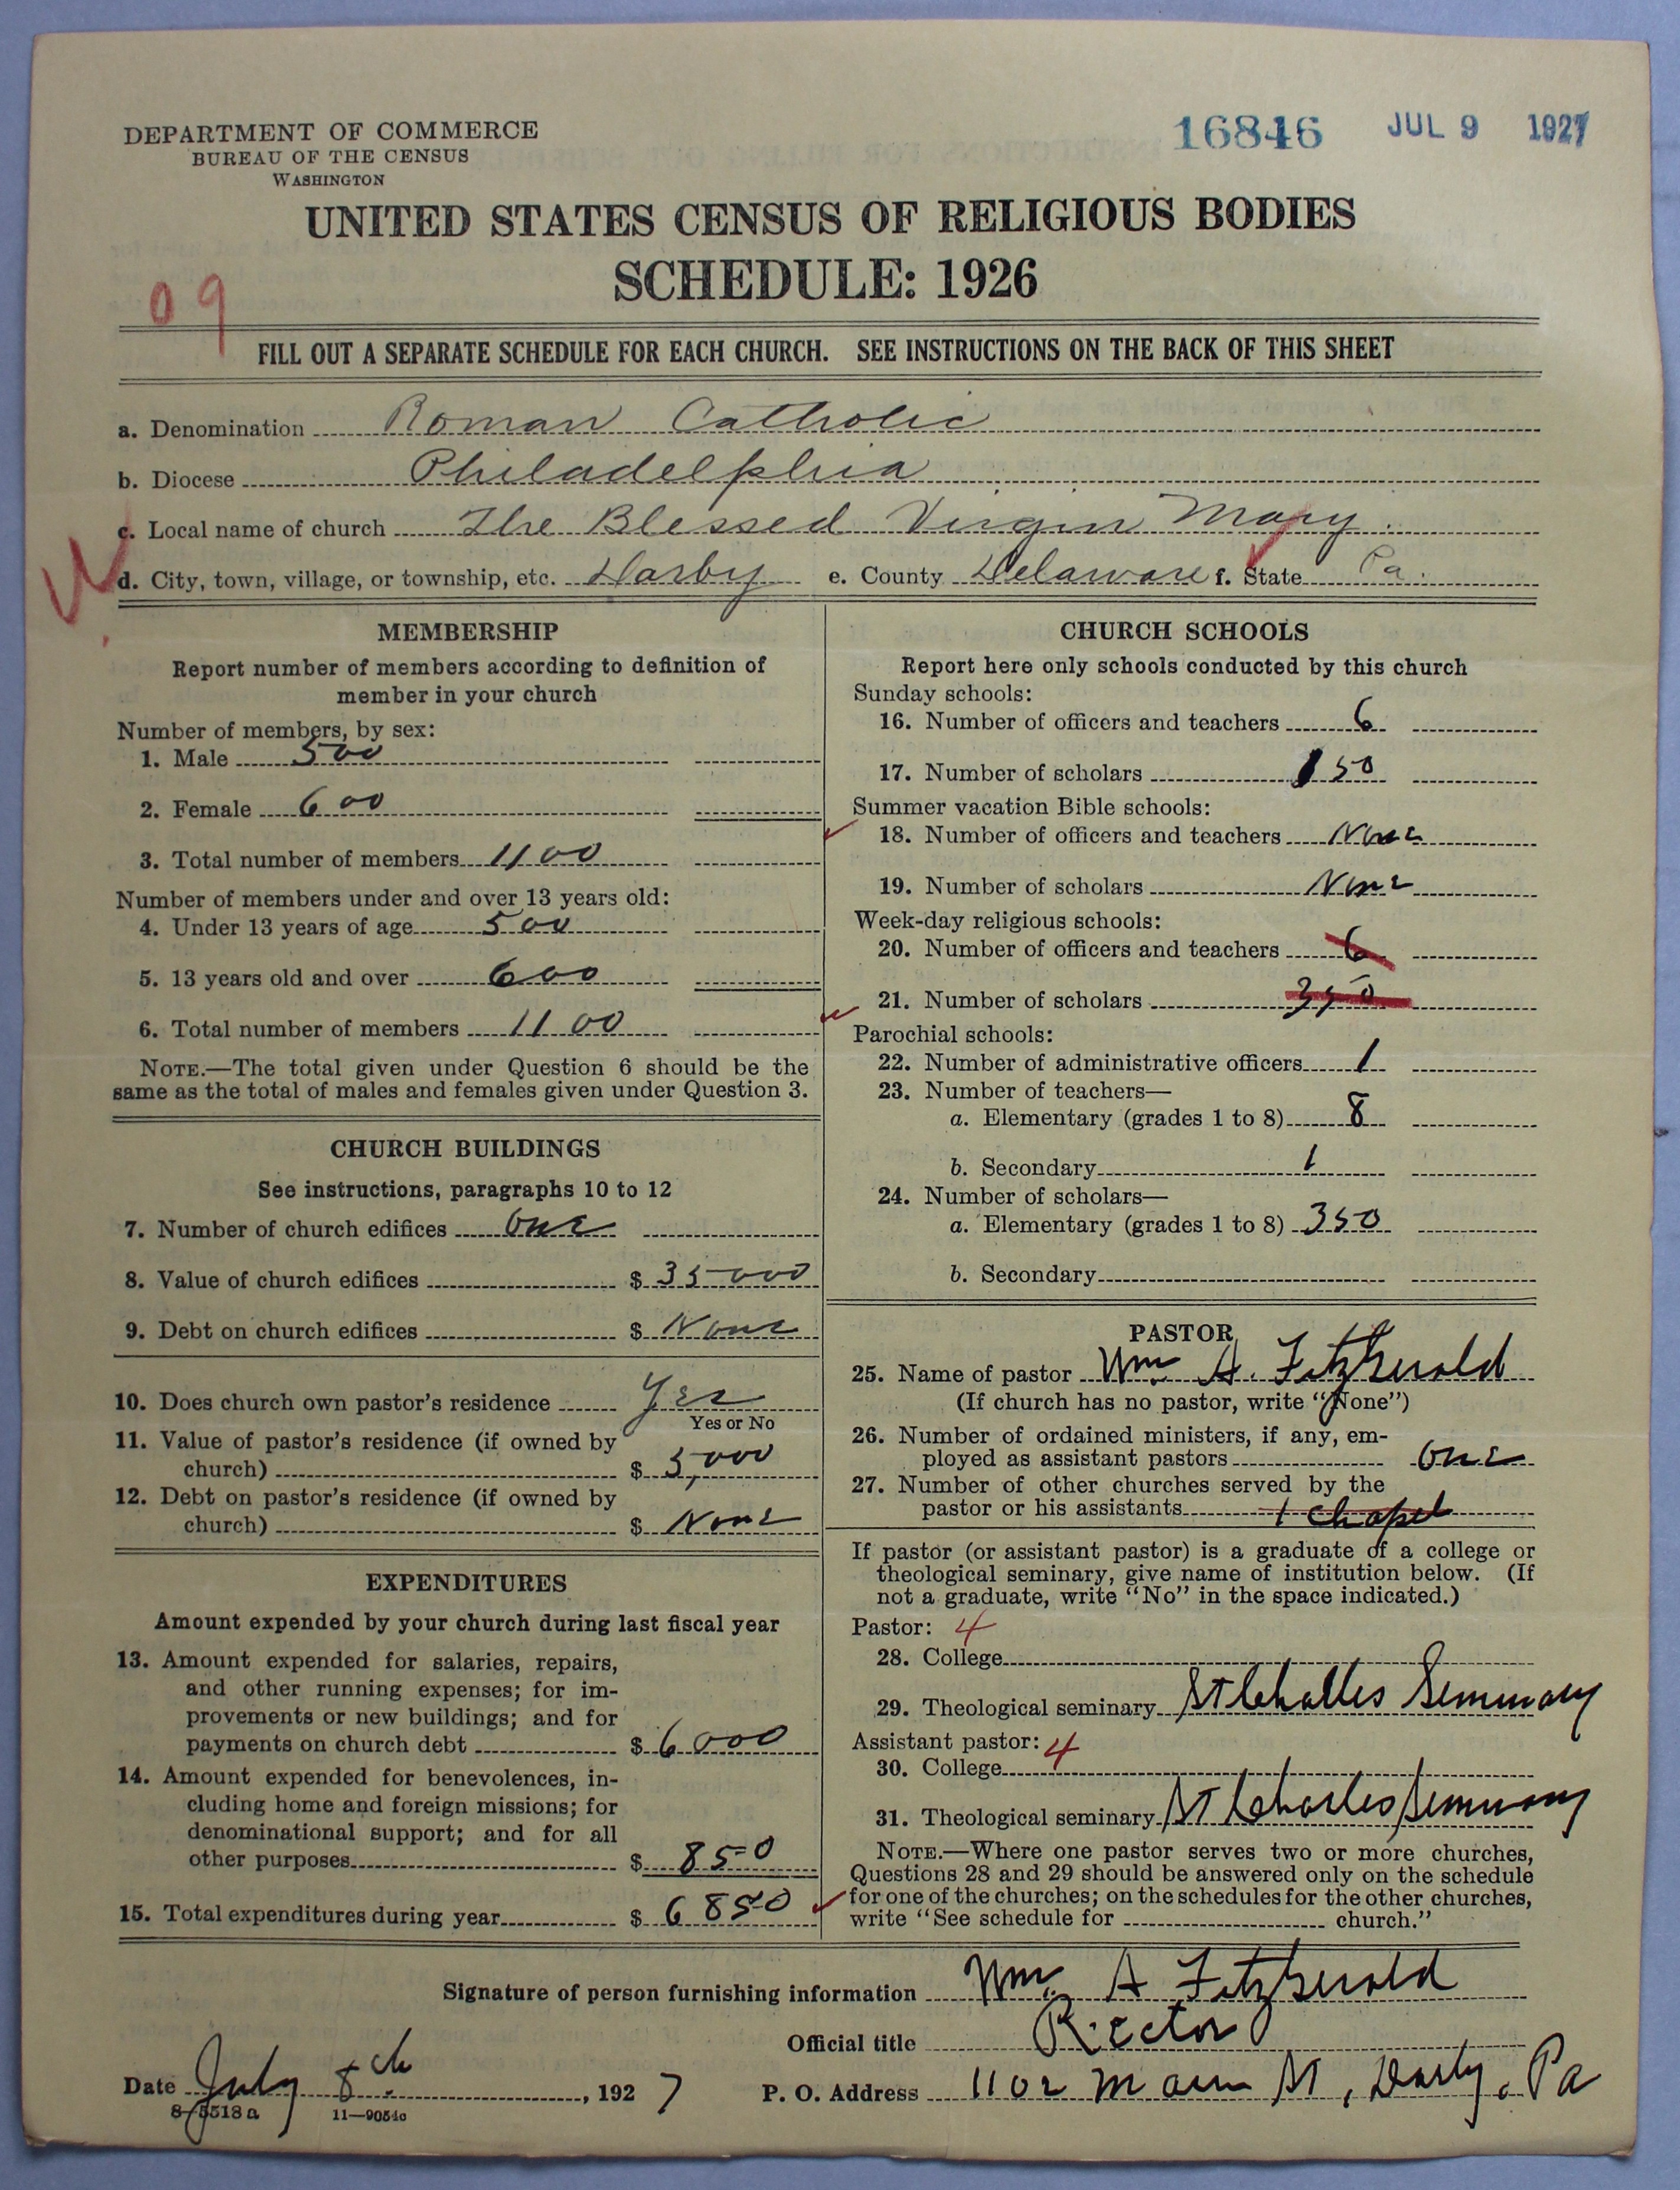 DEPARTMENT OF COMMERCE
BUREAU OF THE CENSUS
WASHINGTON
16846 JUL 9 1927
UNITED STATES CENSUS OF RELIGIOUS BODIES
SCHEDULE: 1926
09
FILL OUT A SEPARATE SCHEDULE FOR EACH CHURCH. SEE INSTRUCTIONS ON THE BACK OF THIS SHEET
a. Denomination Roman Catholic
b. Diocese Philadelphia
c. Local name of church The Blessed Virgin Mary.
d. City, town, village, or township, etc. Darby e. County Delaware f. State Pa.
MEMBERSHIP
Report number of members according to definition of
member in your church
Number of members, by sex:
1. Male 500
2. Female 600
3. Total number of members 1100
Number of members under and over 13 years old:
4. Under 13 years of age 500
5. 13 years old and over 600
6. Total number of members 1100
NOTE.—The total given under Question 6 should be the
same as the total of males and females given under Question 3.
CHURCH BUILDINGS
See instructions, paragraphs 10 to 12
7. Number of church edifices One
8. Value of church edifices $ 35000
9. Debt on church edifices $ None
10. Does church own pastor's residence Yes
Yes or No
11. Value of pastor's residence (if owned by
church) $ 5,000
12. Debt on pastor's residence (if owned by
church) $ None
EXPENDITURES
Amount expended by your church during last fiscal year
13. Amount expended for salaries, repairs,
and other running expenses; for im-
provements or new buildings; and for
payments on church debt $ 6000
14. Amount expended for benevolences, in-
cluding home and foreign missions; for
denominational support; and for all
other purposes $ 850
15. Total expenditures during year $ 6850
CHURCH SCHOOLS
Report here only schools conducted by this church
Sunday schools:
16. Number of officers and teachers 6
17. Number of scholars 150
Summer vacation Bible schools:
18. Number of officers and teachers None
19. Number of scholars None
Week-day religious schools:
20. Number of officers and teachers 6
21. Number of scholars 350
Parochial schools:
22. Number of administrative officers 1
23. Number of teachers—
a. Elementary (grades 1 to 8) 8
b. Secondary 1
24. Number of scholars—
a. Elementary (grades 1 to 8) 350
b. Secondary
PASTOR
25. Name of pastor Wm. A. FitzGerald
(If church has no pastor, write "None")
26. Number of ordained ministers, if any, em-
ployed as assistant pastors One
27. Number of other churches served by the
pastor or his assistants 1 Chapel
If pastor (or assistant pastor) is a graduate of a college or
theological seminary, give name of institution below. (If
not a graduate, write "No" in the space indicated.)
Pastor: 4
28. College
29. Theological seminary St Charles Seminary
Assistant pastor: 4
30. College
31. Theological seminary St Charles Seminary
NOTE.—Where one pastor serves two or more churches,
Questions 28 and 29 should be answered only on the schedule
for one of the churches; on the schedules for the other churches,
write "See schedule for church."
Signature of person furnishing information Wm. A FitzGerald
Official title Rector
Date July 8th, 1927 P. O. Address 1102 Main St, Darby, Pa
8-5518a 11—9054c